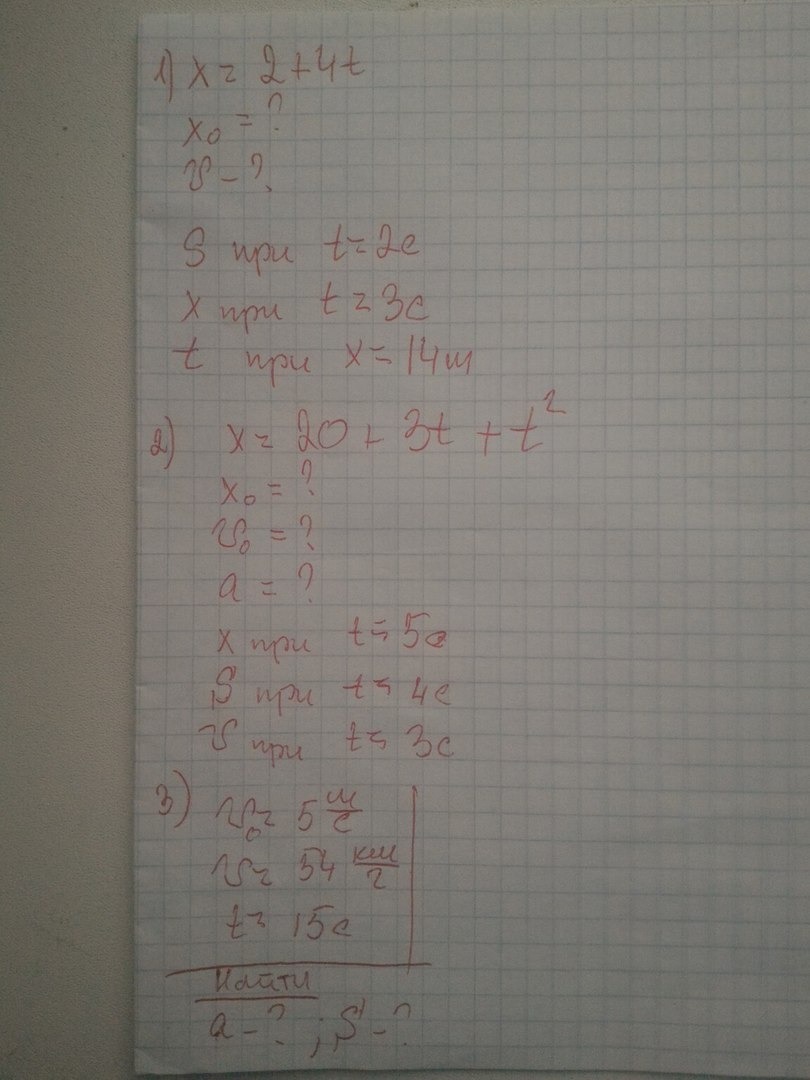 1) x = 2+4t
x₀ = ?
v - ?
S при t = 2с
x при t = 3с
t при x = 14м
2) x = 20 + 3t + t²
x₀ = ?
v₀ = ?
a = ?
x при t = 5с
S при t = 4с
v при t = 3с
3) v₀ = 5 м/с
v = 54 км/г
t = 15с
Найти
a - ? ; S - ?